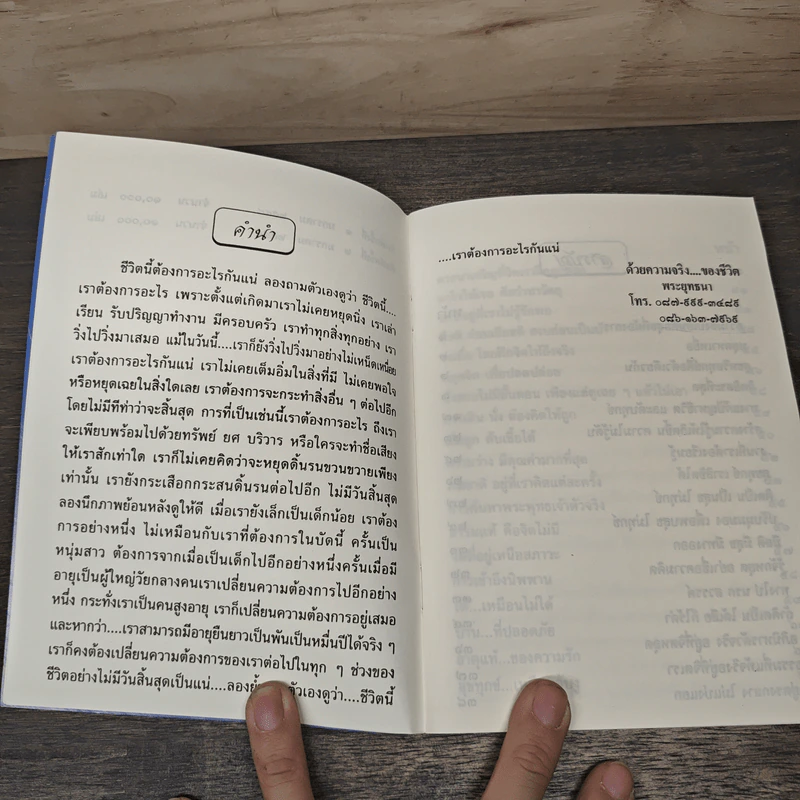 คำนำ
ชีวิตนี้ต้องการอะไรกันแน่ ลองถามตัวเองดูว่า ชีวิตนี้....
เราต้องการอะไร เพราะตั้งแต่เกิดมาเราไม่เคยหยุดนิ่ง เราเล่า
เรียน รับปริญญาทำงาน มีครอบครัว เราทำทุกสิ่งทุกอย่าง เรา
วิ่งไปวิ่งมาเสมอ แม้ในวันนี้....เราก็ยังวิ่งไปวิ่งมาอย่างไม่เหน็ดเหนื่อย
เราต้องการอะไรกันแน่ เราไม่เคยเต็มอิ่มในสิ่งที่มี ไม่เคยพอใจ
หรือหยุดเฉยในสิ่งใดเลย เราต้องการจะกระทำสิ่งอื่น ๆ ต่อไปอีก
โดยไม่มีทีท่าว่าจะสิ้นสุด การที่เป็นเช่นนี้เราต้องการอะไร ถึงเรา
จะเพียบพร้อมไปด้วยทรัพย์ ยศ บริวาร หรือใครจะทำชื่อเสียง
ให้เราสักเท่าใด เราก็ไม่เคยคิดว่าจะหยุดดิ้นรนขวนขวายเพียง
เท่านั้น เรายังกระเสือกกระสนดิ้นรนต่อไปอีก ไม่มีวันสิ้นสุด
ลองนึกภาพย้อนหลังดูให้ดี เมื่อเรายังเล็กเป็นเด็กน้อย เราต้อง
การอย่างหนึ่ง ไม่เหมือนกับเราที่ต้องการในบัดนี้ ครั้นเป็น
หนุ่มสาว ต้องการจากเมื่อเป็นเด็กไปอีกอย่างหนึ่งครั้นเมื่อมี
อายุเป็นผู้ใหญ่วัยกลางคนเราเปลี่ยนความต้องการไปอีกอย่าง
หนึ่ง กระทั่งเราเป็นคนสูงอายุ เราก็เปลี่ยนความต้องการอยู่เสมอ
และหากว่า....เราสามารถมีอายุยืนยาวเป็นพันเป็นหมื่นปีได้จริง ๆ
เราก็คงต้องเปลี่ยนความต้องการของเราต่อไปในทุก ๆ ช่วงของ
ชีวิตอย่างไม่มีวันสิ้นสุดเป็นแน่....ลองย้ำ ตัวเองดูว่า....ชีวิตนี้
....เราต้องการอะไรกันแน่
ด้วยความจริง....ของชีวิต
พระยุทธนา
โทร. ๐๘๗-๙๙๙-๓๔๘๙
๐๘๖-๑๖๓-๗๙๖๙